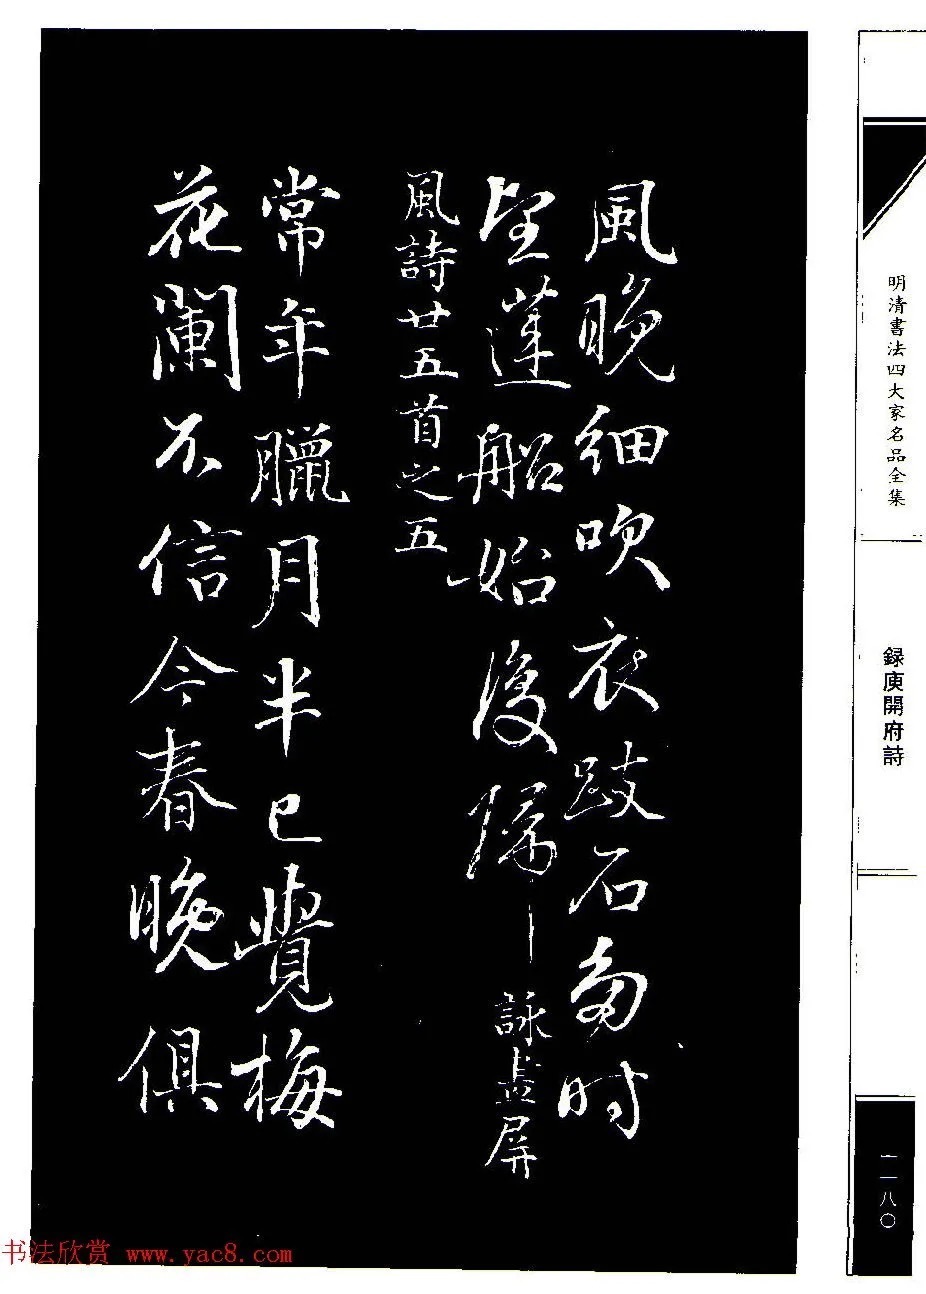 明清書法四大家名品全集
録庾開府詩
一一八〇
風晚細吹衣跂石多時
望蓮船始復歸 詠畫屏
風詩廿五首之五
常年臘月半已覺梅
花闌不信今春晚俱
书法欣赏 www.yac8.com